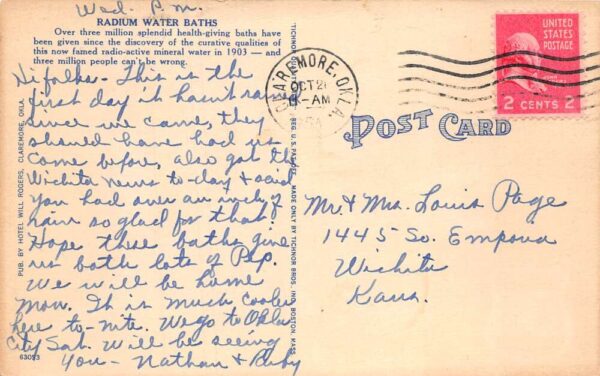 Wed. P.M.
RADIUM WATER BATHS
Over three million splendid health-giving baths have
been given since the discovery of the curative qualities of
this now famed radio-active mineral water in 1903 — and
three million people can't be wrong.
Hi folks - This is the
first day it hasn't rained
since we came, they
should have had us
come before, also got the
Wichita news to-day & said
you had over an inch of
rain so glad for that.
Hope these baths give
us both lots of Pep.
We will be home
Mon. It is much cooler
here to-nite. We go to Okla
City Sat. Will be seeing
You - Nathan & Ruby
63023
PUB. BY HOTEL WILL ROGERS, CLAREMORE, OKLA.
MADE ONLY BY TICHNOR BROS. INC. BOSTON, MASS.
CLAREMORE, OKLA.
OCT 21
11-AM
UNITED
STATES
POSTAGE
2 CENTS 2
POST CARD
Mr. & Mrs. Louis Page
1445 So. Emporia
Wichita
Kans.